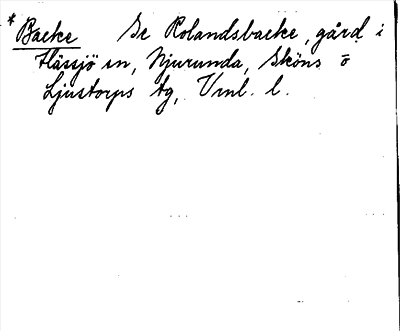 * Backe Se Rolandsbacke, gård i
Hässjö sn, Njurunda, Sköns o
Ljustorps tg, Vml. l.